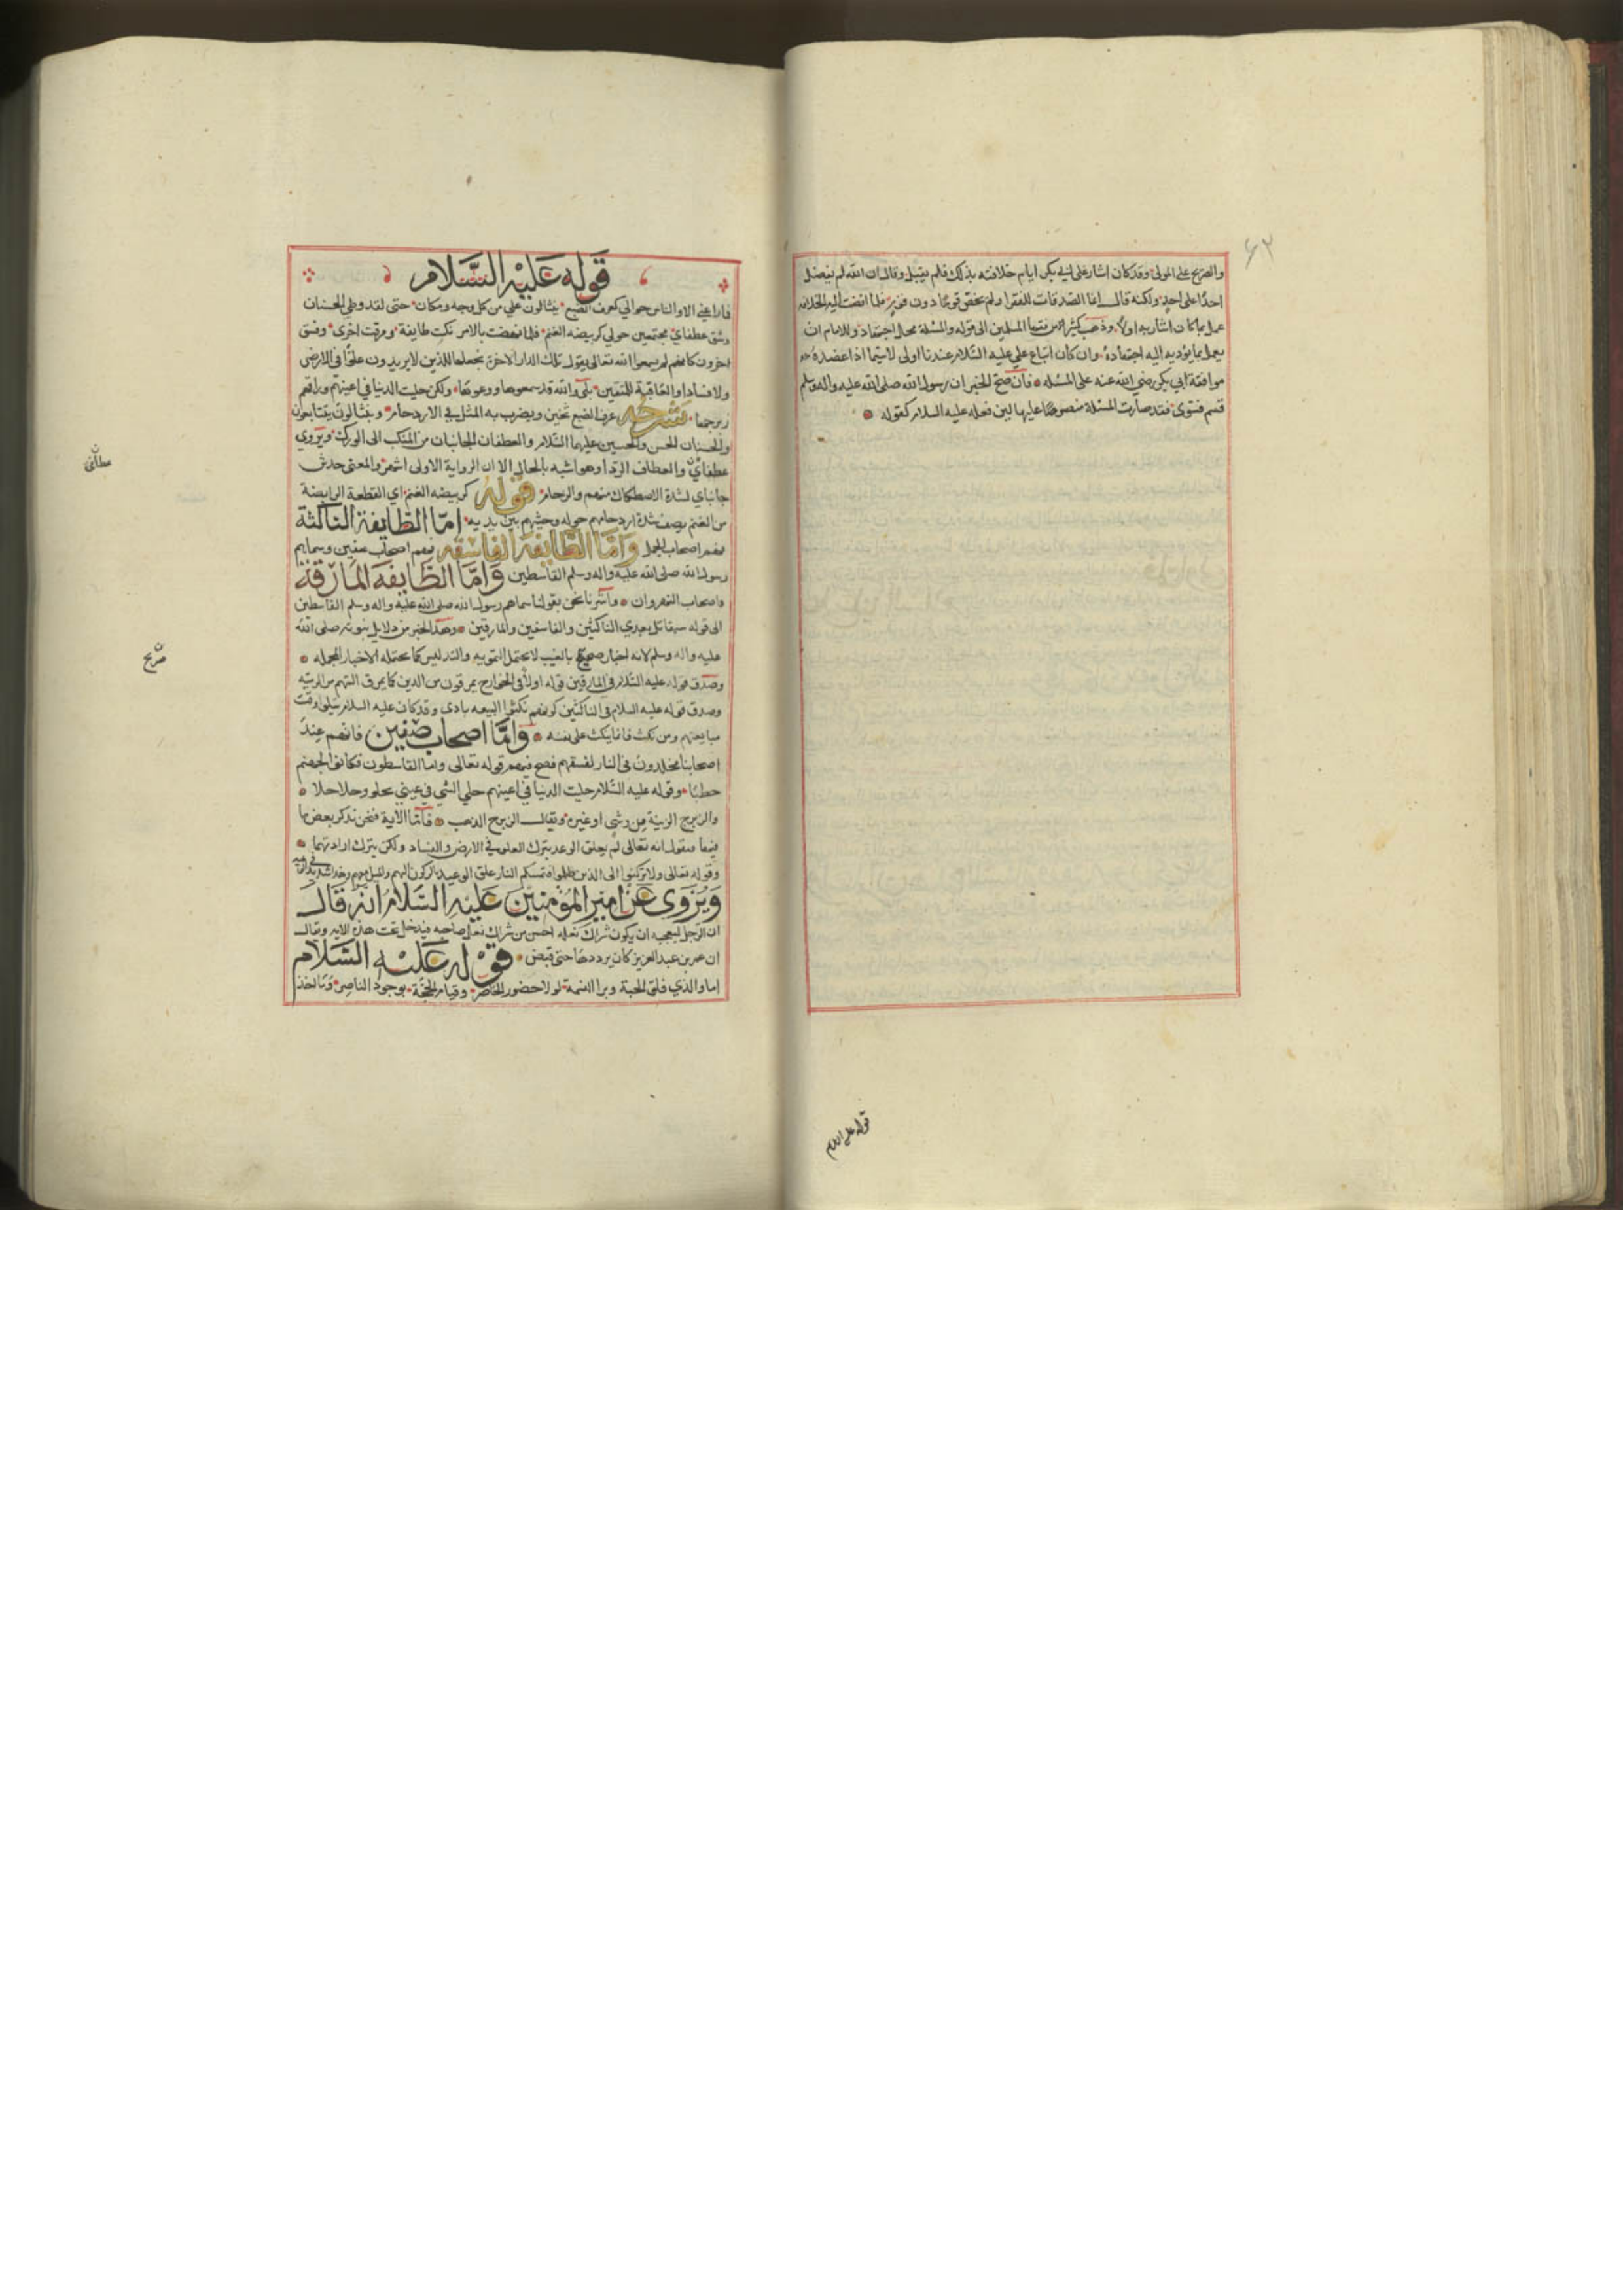 والصريح على المولى وقد كان اشار على ابي بكر ايام خلافته بذلك فلم يقبل وقال ان الله لم يفضل
احدا على احد ولكنه قال انما الصدقات للفقرا ولم يخص قوما دون قوم فلما افضت اليه الخلافه
عمل بما كان اشار به اولا وذهب كثير من فقها المسلمين الى قوله والمسئلة محل اجتهاد وللامام ان
يعمل بما يؤديه اليه اجتهاده وان كان اتباع علي عليه السلام عندنا اولى لاسيما اذا عضده
موافقة ابي بكر رضي الله عنه على المسئله فان صح الخبر ان رسول الله صلى الله عليه واله وسلم
قسم فسوى فقد صارت المسئلة منصوصا عليها لان فعله عليه السلام كقوله
قوله عليه السلام
قوله عليه السلام
فما راعني الا والناس حوالي كعرف الضبع ينثالون علي من كل وجه ومكان حتى لقد وطي الحسنان
وشق عطفاي مجتمعين حولي كربيضه الغنم فلما نهضت بالامر نكثت طايفة ومرقت اخرى وفسق
اخرون كانهم لم يسمعوا الله تعالى يقول تلك الدار الاخرة نجعلها للذين لا يريدون علوا في الارض
ولا فسادا والعاقبة للمتقين بلى والله قد سمعوها ووعوها ولكن حليت الدنيا في اعينهم وراقهم
زبرجها شرحه عرف الضبع ثخين ويضرب به المثل في الازدحام وينثالون يتتابعون
والحسنان الحسن والحسين عليهما السلام والعطفان الجانبان من المنكب الى الورك ويروى
عطفاي والعطاف الردا وهو اشبه بالحال الا ان الرواية الاولى اشهر والمعنى خدش
جانباي لشدة الاصطكاك منهم والزحام قوله كربيضه الغنم اي القطعة الرابضة
من الغنم يصف شدة ازدحامهم حوله وجثيهم بين يديه اما الطايفة الناكثة
فهم اصحاب الجمل واما الطايفة الفاسقه فهم اصحاب صفين وسماهم
رسول الله صلى الله عليه واله وسلم القاسطين واما الطايفه المارقة
فاصحاب النهروان واشرنا نحن بقولنا سماهم رسول الله صلى الله عليه واله وسلم القاسطين
الى قوله ستقاتل بعدي الناكثين والقاسطين والمارقين وهذا الخبر من دلايل نبوته صلى الله
عليه واله وسلم لانه اخبار صريح بالغيب لا يحتمل التمويه والتدليس كما تحتمله الاخبار المجمله
وصدق قوله عليه السلام في المارقين قوله اولا في الخوارج يمرقون من الدين كما يمرق السهم من الرميه
وصدق قوله عليه السلام في الناكثين كونهم نكثوا البيعه بادى وقد كان عليه السلام يتلو وقت
مبايعتهم ومن نكث فانما ينكث على نفسه واما اصحاب صفين فانهم عند
اصحابنا مخلدون في النار لفسقهم فصح فيهم قوله تعالى واما القاسطون فكانوا لجهنم
حطبا وقوله عليه السلام حليت الدنيا في اعينهم حلي الشي في عيني يحلو وحلا حلا
والزبرج الزينة من وشي او غيره ويقال الزبرج الذهب فاما الاية فنحن نذكر بعض ما
فيها فنقول انه تعالى لم يعلق الوعد بترك العلو في الارض والفساد ولكن بترك ارادتهما
وقوله تعالى ولا تركنوا الى الذين ظلموا فتمسكم النار علق الوعيد بالركون اليهم والميل معهم
ويروى عن امير المؤمنين عليه السلام انه قال
ان الرجل ليعجبه ان يكون شراك نعله احسن من شراك نعل صاحبه فيدخل تحت هذه الايه ويقال
ان عمر بن عبد العزيز كان يرددها حتى قبض قوله عليه السلام
اما والذي فلق الحبة وبرا النسمة لولا حضور الحاضر وقيام الحجة بوجود الناصر وما اخذ
صريح